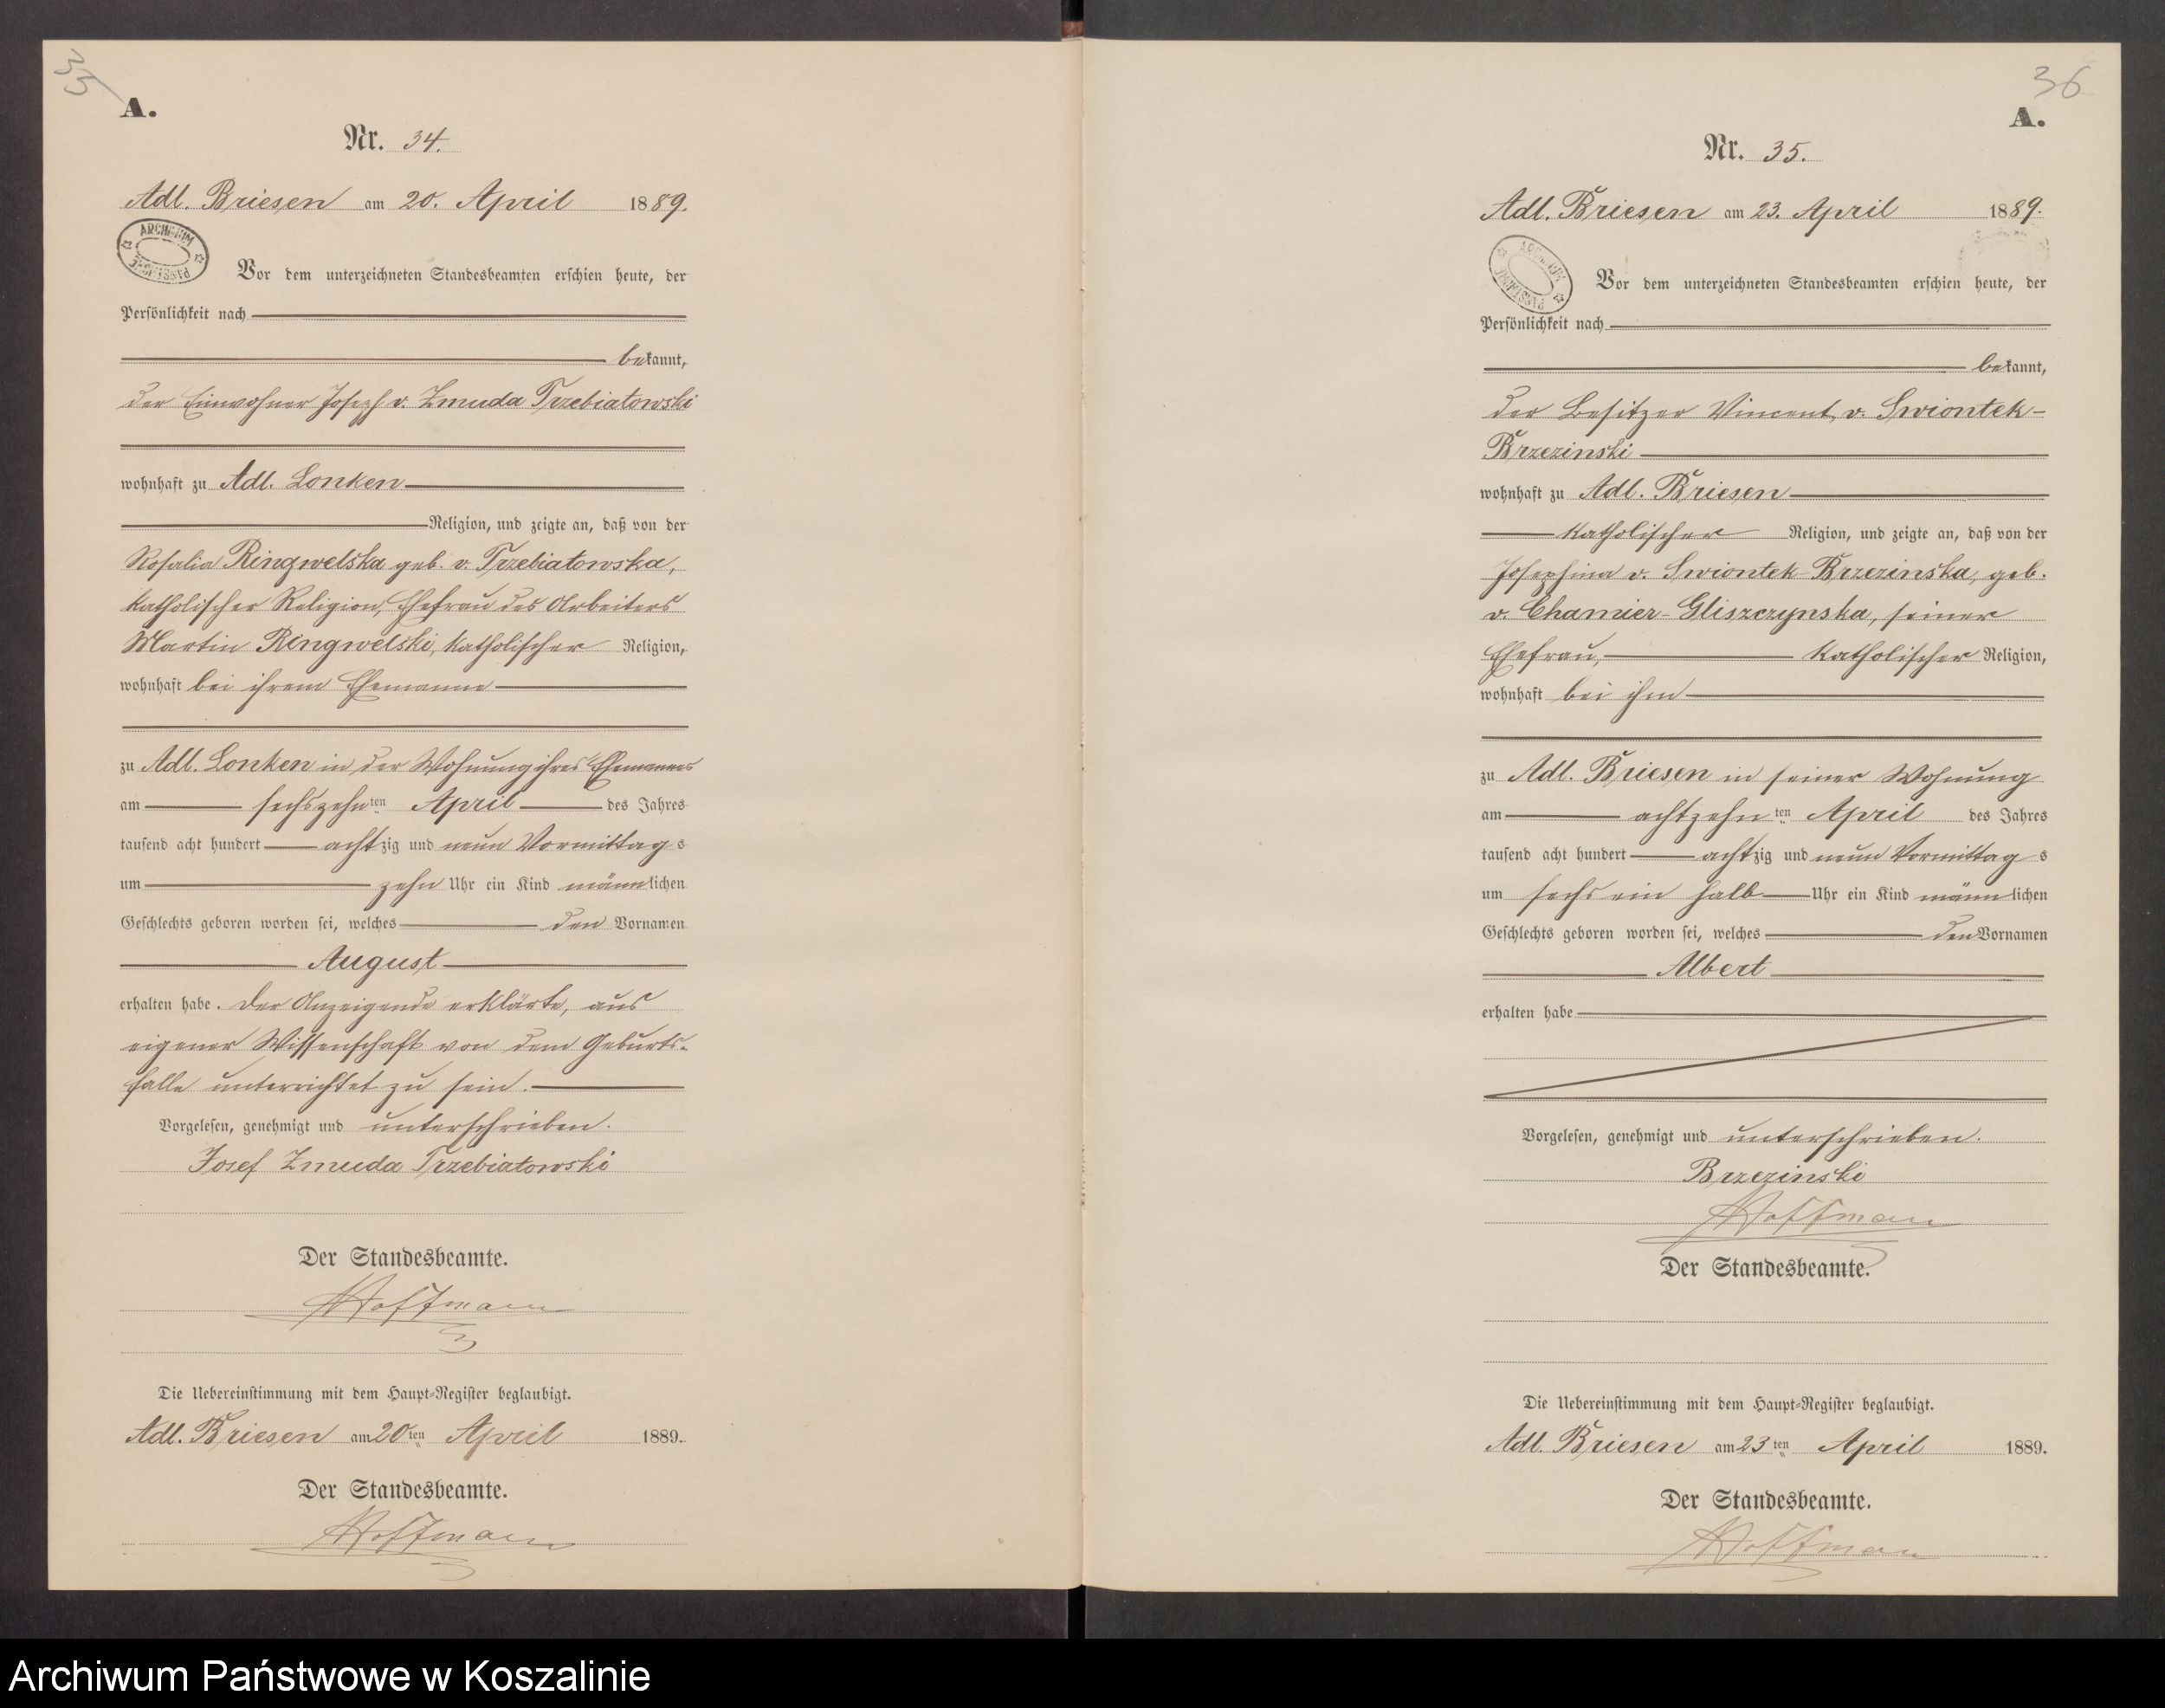 35
A.
Nr. 34.
Adl. Briesen am 20. April 1889.
ARCHIWUM PAŃSTWOWE
Vor dem unterzeichneten Standesbeamten erschien heute, der
Persönlichkeit nach
bekannt,
der Einwohner Joseph v. Zmuda Trzebiatowski
wohnhaft zu Adl. Lonken
Religion, und zeigte an, daß von der
Rosalia Ringwelska geb. v. Trzebiatowska,
katholischer Religion, Ehefrau des Arbeiters
Martin Ringwelski, katholischer Religion,
wohnhaft bei ihrem Ehemanne
zu Adl. Lonken in der Wohnung ihres Ehemannes
am sechszehnten April des Jahres
tausend acht hundert achtzig und neun Vormittags
um zehn Uhr ein Kind männlichen
Geschlechts geboren worden sei, welches den Vornamen
August
erhalten habe. Der Anzeigende erklärte, aus
eigener Wissenschaft von dem Geburts-
falle unterrichtet zu sein.
Vorgelesen, genehmigt und unterschrieben.
Josef Zmuda Trzebiatowski
Der Standesbeamte.
Hoffmann
Die Uebereinstimmung mit dem Haupt-Register beglaubigt.
Adl. Briesen am 20ten April 1889.
Der Standesbeamte.
Hoffmann
36
A.
Nr. 35.
Adl. Briesen am 23. April 1889.
ARCHIWUM PAŃSTWOWE
Vor dem unterzeichneten Standesbeamten erschien heute, der
Persönlichkeit nach
bekannt,
der Besitzer Vincent v. Swiontek-
Brzezinski
wohnhaft zu Adl. Briesen
katholischer Religion, und zeigte an, daß von der
Josephina v. Swiontek-Brzezinska, geb.
v. Chamier-Gliszczynska, seiner
Ehefrau, katholischer Religion,
wohnhaft bei ihm
zu Adl. Briesen in seiner Wohnung
am achtzehnten April des Jahres
tausend acht hundert achtzig und neun Vormittags
um sechs ein halb Uhr ein Kind männlichen
Geschlechts geboren worden sei, welches den Vornamen
Albert
erhalten habe
Vorgelesen, genehmigt und unterschrieben.
Brzezinski
Hoffmann
Der Standesbeamte.
Die Uebereinstimmung mit dem Haupt-Register beglaubigt.
Adl. Briesen am 23ten April 1889.
Der Standesbeamte.
Hoffmann
Archiwum Państwowe w Koszalinie